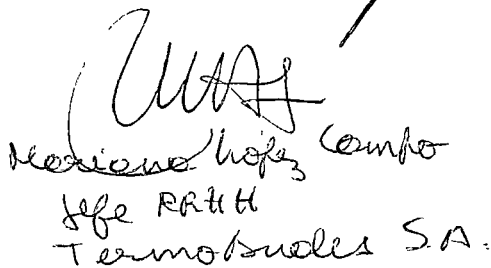 Mariano López Campo
Jefe RRHH
TermoAndes S.A.